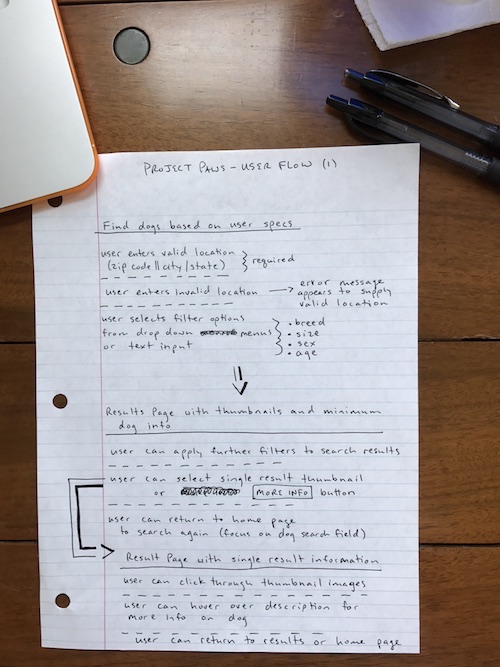 PROJECT PAWS - USER FLOW (1)
Find dogs based on user specs
user enters valid location
(zip code || city/state)
required
user enters invalid location
error message
appears to supply
valid location
user selects filter options
from drop down menus
or text input
• breed
• size
• sex
• age
Results Page with thumbnails and minimum
dog info
user can apply further filters to search results
user can select single result thumbnail
or MORE INFO button
user can return to home page
to search again (focus on dog search field)
Result Page with single result information
user can click through thumbnail images
user can hover over description for
more info on dog
user can return to results or home page